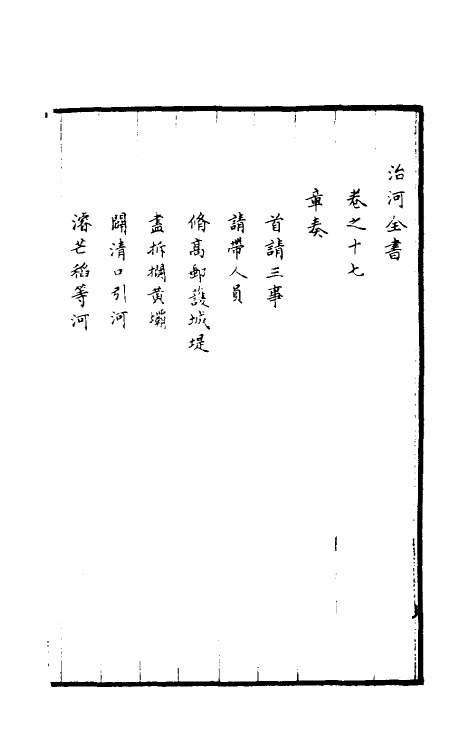 治河全書
卷之十七
章奏
首請三事
請帶人員
脩高郵護城堤
盡拆攔黃壩
闢清口引河
濬芒稻等河